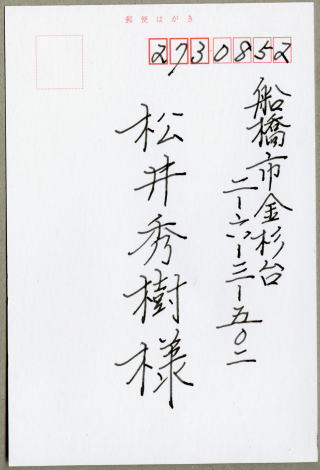 郵便はがき
2730852
船橋市金杉台
二ー六ー三ー五〇二
松井秀樹様